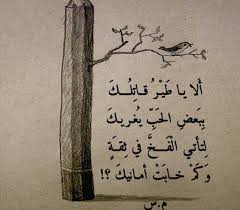 ألا يا طَيْرُ قاتِلُكَ
بِبَعضِ الحَبِّ يُغريكَ
لِتأتي الْفَخَّ في ثِقةٍ
وَكَمْ خابَتْ أمانيكَ ؟!
م.س